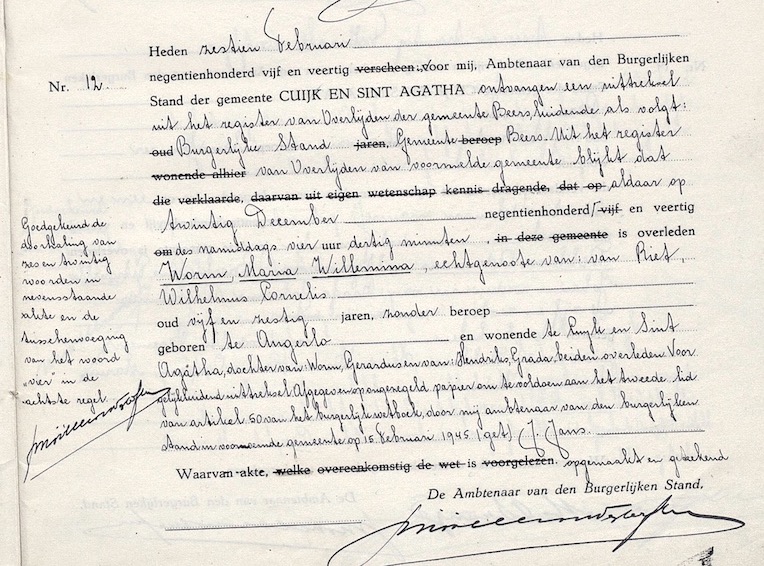 Nr. 12.
Heden zestien Februari
negentienhonderd vijf en veertig verscheen voor mij, Ambtenaar van den Burgerlijken
Stand der gemeente CUIJK EN SINT AGATHA ontvangen een uittreksel
uit het register van Overlijden der gemeente Beers, luidende als volgt:
oud Burgerlijke Stand jaren, Gemeente beroep Beers. Uit het register
wonende alhier van Overlijden van voormelde gemeente blijkt dat
die verklaarde, daarvan uit eigen wetenschap kennis dragende, dat op aldaar op
twintig December negentienhonderd/vijf en veertig
om des namiddags vier uur dertig minuten, in deze gemeente is overleden
Worm, Maria Willemina, echtgenoote van: van Riet,
Wilhelmus Cornelis
oud vijf en zestig jaren, zonder beroep
geboren te Angerlo en wonende te Kuyk en Sint
Agatha, dochter van: Worm, Gerardus en van: Hendriks, Grada, beiden overleden. Voor
gelijkluidend uittreksel. Afgegeven op ongezegeld papier om te voldoen aan het tweede lid
van artikel 50 van het burgerlijk wetboek, door mij ambtenaar van den burgerlijken
stand in voornoemde gemeente op 15 Februari 1945 (get) J. Jans.
Waarvan akte, welke overeenkomstig de wet is voorgelezen. opgemaakt en geteekend
De Ambtenaar van den Burgerlijken Stand,
Goedgekeurd de
doorhaling van
zes en twintig
woorden in
nevensstaande
akte en de
tusschenvoeging
van het woord
„vier" in de
achtste regel